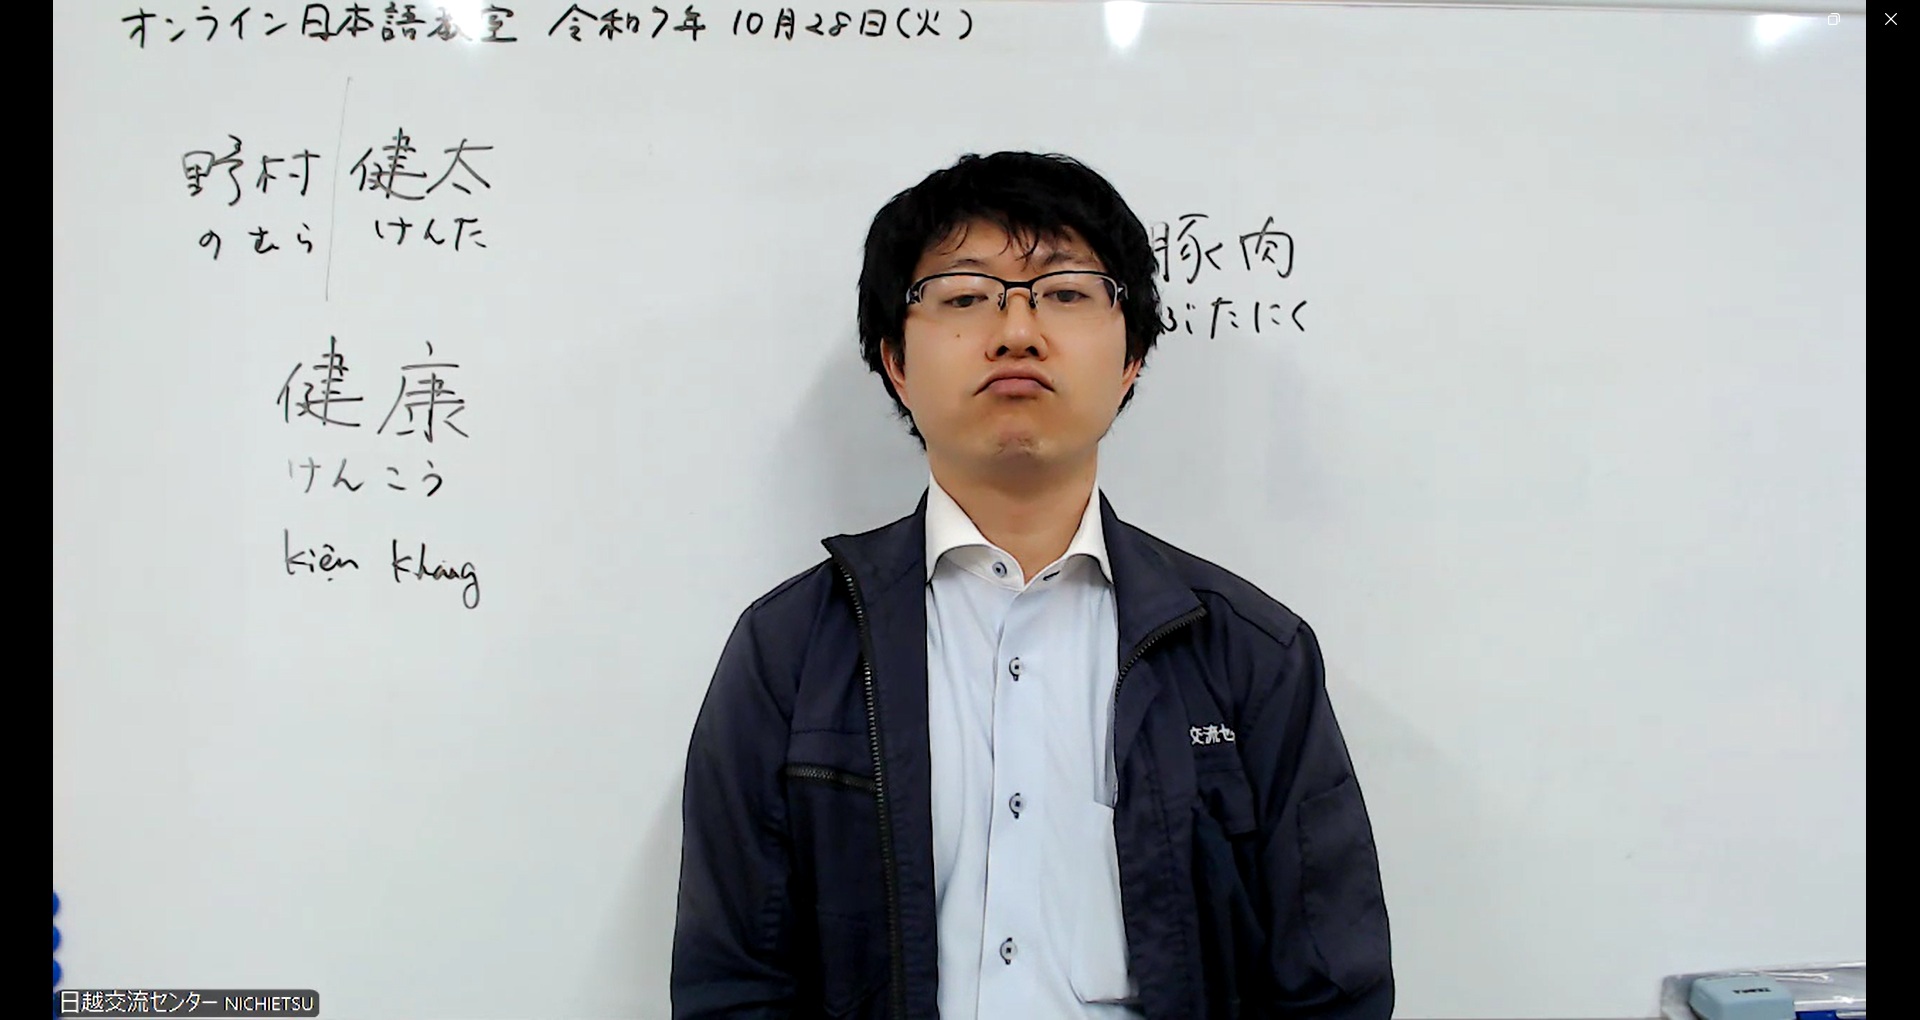 オンライン日本語教室 令和7年 10月28日(火)
野村 健太
のむら けんた
豚肉
ぶたにく
健康
けんこう
kiện khang
交流セ
日越交流センター NICHIETSU